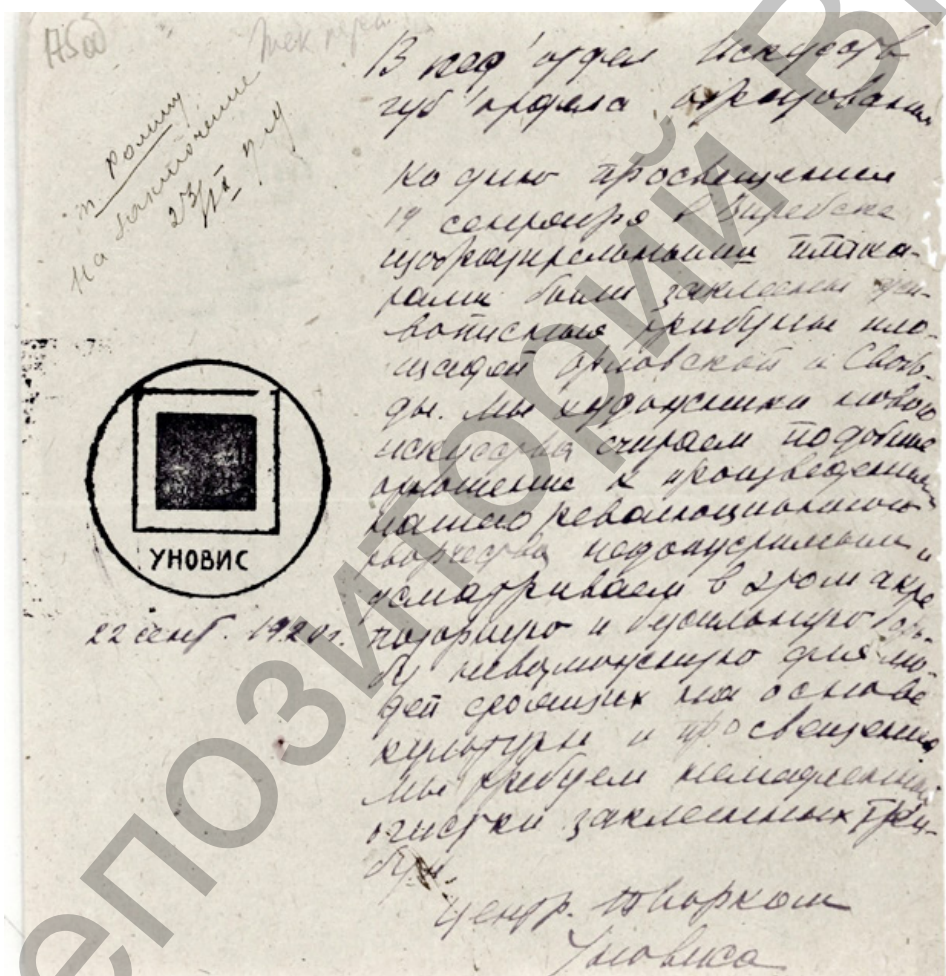 т Ромму
на заключение
23/IX
В под'отдел Искусств
губ'отдела образования
Ко дню просвещения
19 сентября в Витебске
изобразительными плака-
рами были заклеены жи-
вописные трибуны пло-
щадей Орловской и Свобо-
ды. Мы художники нового
искусства считаем подобные
отношение к произведениям
нашего революционного
творчества недопустимым и
усматриваем в этом акте
позорную и бессильную борь-
бу невозможную для лю-
дей стоящих на основе
культуры и просвещения
Мы требуем немедленной
очистки заклеенных три-
бун.
Центр. Творком
Уновиса
УНОВИС
22 сент. 1920 г.
ЕПОЗИТОРИЙ В